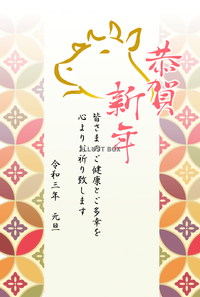 恭賀
新年
皆さまのご健康とご多幸を
心よりお祈り致します
令和三年 元旦
ILLUST BOX